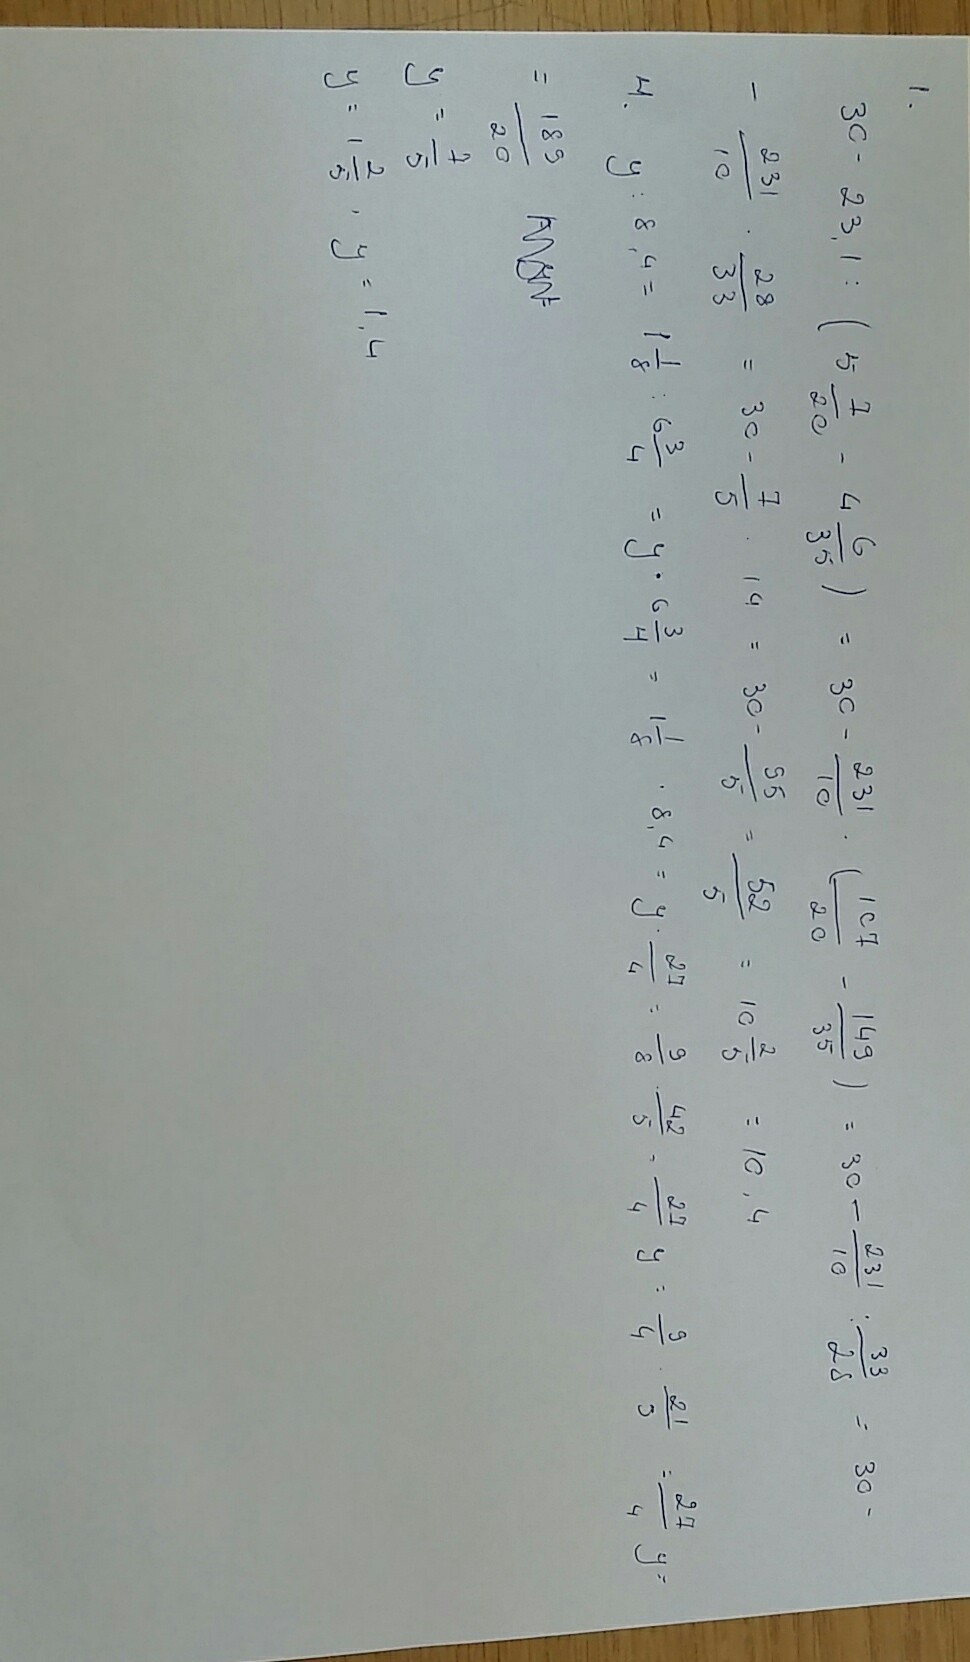 1.
30 - 23,1 : ( 5 7/20 - 4 6/35 ) = 30 - 231/10 · ( 107/20 - 149/35 ) = 30 - 231/10 : 33/28 = 30 -
- 231/10 · 28/33 = 30 - 7/5 · 14 = 30 - 95/5 = 52/5 = 10 2/5 = 10,4
4. y : 8,4 = 1 1/8 : 6 3/4 = y · 6 3/4 = 1 1/8 · 8,4 = y · 27/4 = 9/8 · 42/5 - 27/4 y = 9/4 · 21/5 = 27/4 y =
= 189/20
y = 7/5
y = 1 2/5 , y = 1,4